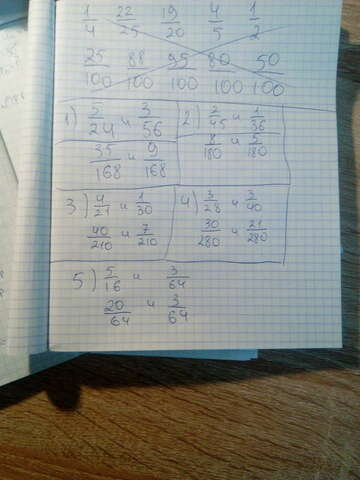 1/4 22/25 19/20 4/5 1/2
25/100 88/100 95/100 80/100 50/100
1) 5/24 и 3/56
35/168 и 9/168
2) 2/45 и 1/36
8/180 и 5/180
3) 4/21 и 1/30
40/210 и 7/210
4) 3/28 и 3/40
30/280 и 21/280
5) 5/16 и 3/64
20/64 и 3/64